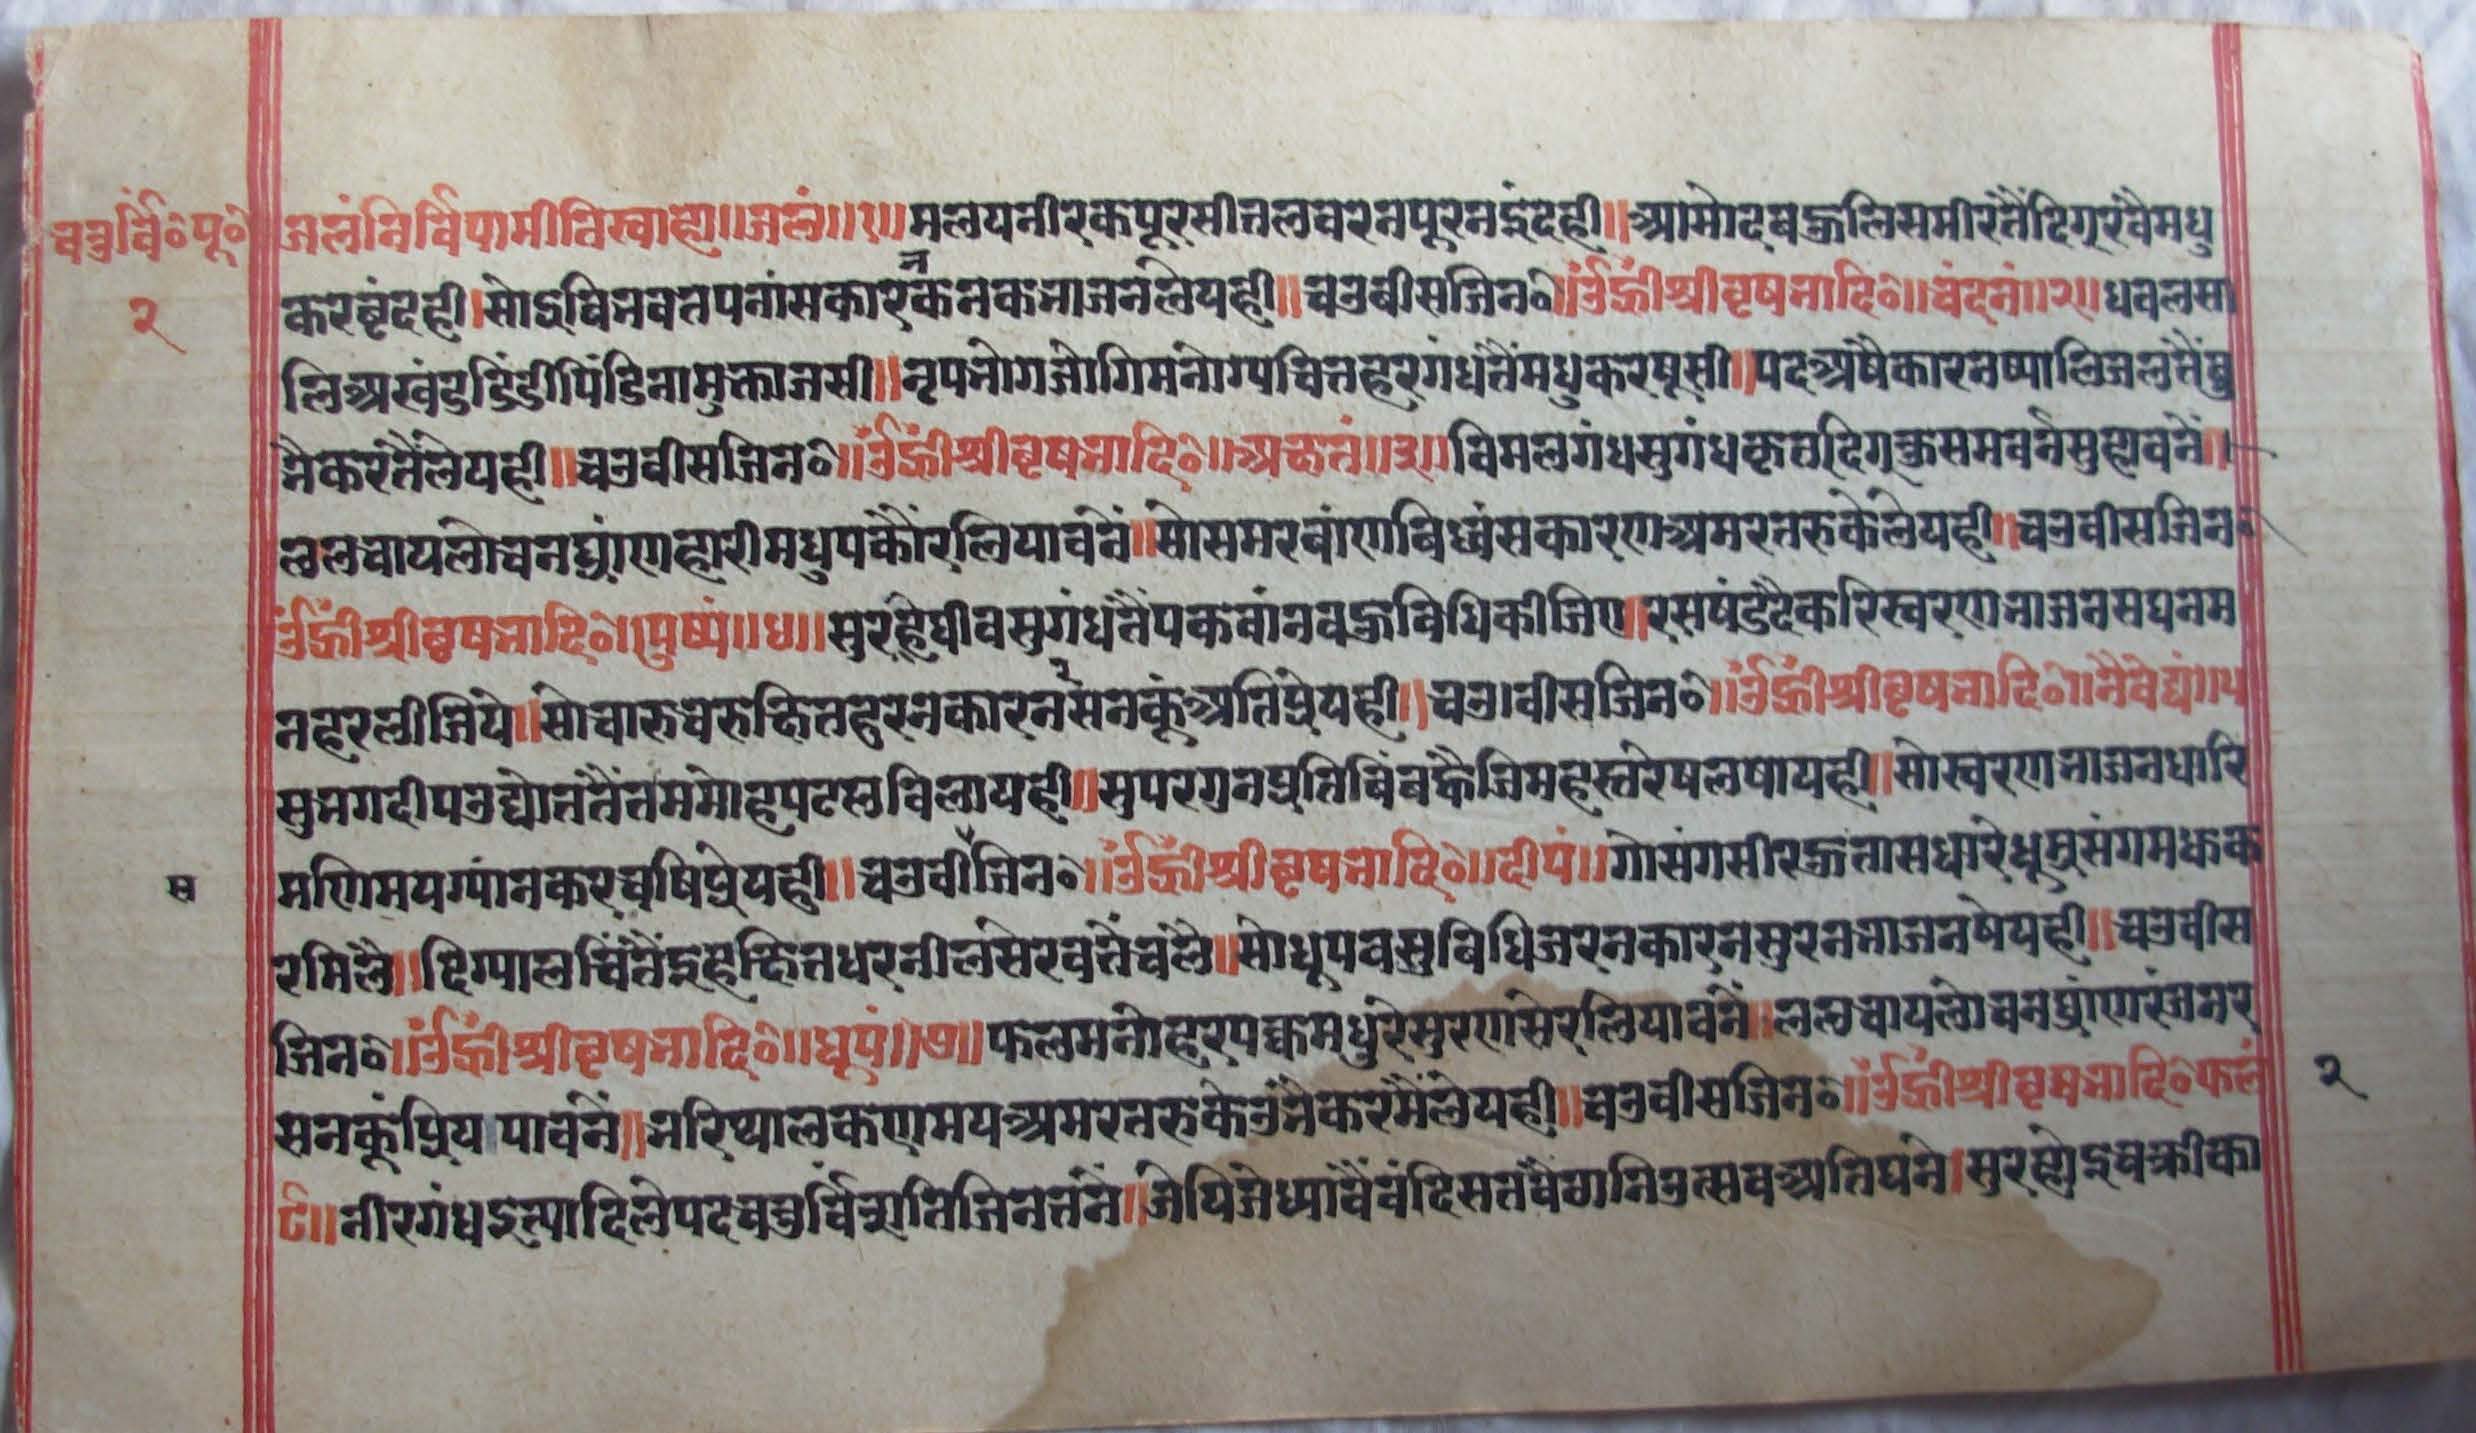 चतुर्विं॰पू॰
२
जलंनिर्विपामीतिस्वाहा॥जलं॥१॥मलयनीरकपूरसीतलवरनपूरनइंदही॥आमोदबऊलिसमीरतैंदिगूरवैमधु
करबृंदही।सोऽविभवतपनांसकारनकनकभाजनलेयही॥चउबीसजिन॰॥उँह्रीँश्रीवृषभादि॰॥चंदनं॥२॥धवलसा
लिअखंडडिंडीपिंडिनामुक्ताजसी॥नृपभोगजोगिमनोग्यचितहरगंधतैंमधुकरषूसी॥पदअषैकारनष्यालिजलतैंषु
भैकरतैंलेयही॥चउवीसजिन॰॥उँह्रीँश्रीवृषभादि॰॥अक्षतं॥३॥विमलगंधसुगंधकृतदिगकुसमवर्नसुहावनैं॥
ललचायलोचनघ्रांणहारीमधुपकौंरलियावनें॥सोसमरबांणविध्वंसकारणअमरतरुकेलेयही॥चउवीसजिन॰
उँह्रीँश्रीवृषभादि॰॥पुष्पं॥४॥सुरहैघीवसुगंधतैंपकवांनबऊविधिकीजिए॥रसषंडदैकरिस्वरणभाजनसघनम
नहरलीजिये॥सोचारुचरुक्षितहरनकारनरसनकूंअतिप्रेयही॥चउवीसजिन॰॥उँह्रीँश्रीवृषभादि॰॥नैवेद्यं॥५
सुभगदीपउद्योततैंतममोहपटलविलायही॥सुपरगुनप्रतिबिंबकैजिमहस्तरेषलषायही॥सोस्वरणभाजनधारि
मणिमयग्यांनकरचषिप्रेयही॥चउवीजिन॰॥उँह्रीँश्रीवृषभादि॰॥दीपं॥गोसंगसीरऊतासधारेधूम्रसंगमऊक
स
रमिलै॥दिग्पालचिंतैंइहक्षितधरनीलसेरवतैचलै॥सोधूपवसुविधिजरनकारनसुरनभाजनषेयही॥चउवीस
जिन॰॥उँह्रीँश्रीवृषभादि॰॥धूपं॥७॥फलमनोहरपक्वमधुरेसुरणसेरलियावनैं॥ललचायलोचनघ्रांणरंजनर
सनकूंप्रियपावनें॥भरिथालकणमयअमरतरुकेउंभैकरमैंलेयही॥चउवीसजिन॰॥उँह्रीँश्रीवृषभादि॰फलं
८॥नीरगंधइत्यादिलेपदचतुर्विंशतिजिनतनें॥जेयिजेध्यावैंवंदिसतवैठानिउत्सवअतिघने।सुरह्वोइचक्रीका
२